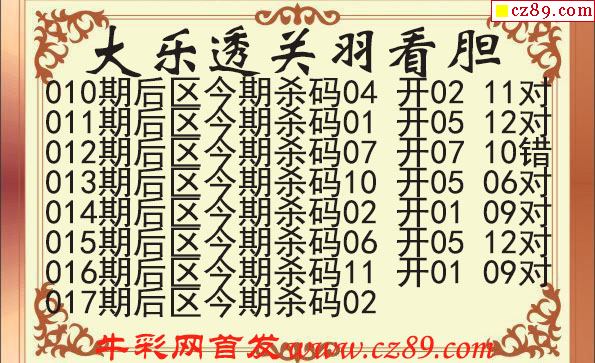 cz89.com
大乐透关羽看胆
010期后区今期杀码04 开02 11对
011期后区今期杀码01 开05 12对
012期后区今期杀码07 开07 10错
013期后区今期杀码10 开05 06对
014期后区今期杀码02 开01 09对
015期后区今期杀码06 开05 12对
016期后区今期杀码11 开01 09对
017期后区今期杀码02
牛彩网首发www.cz89.com